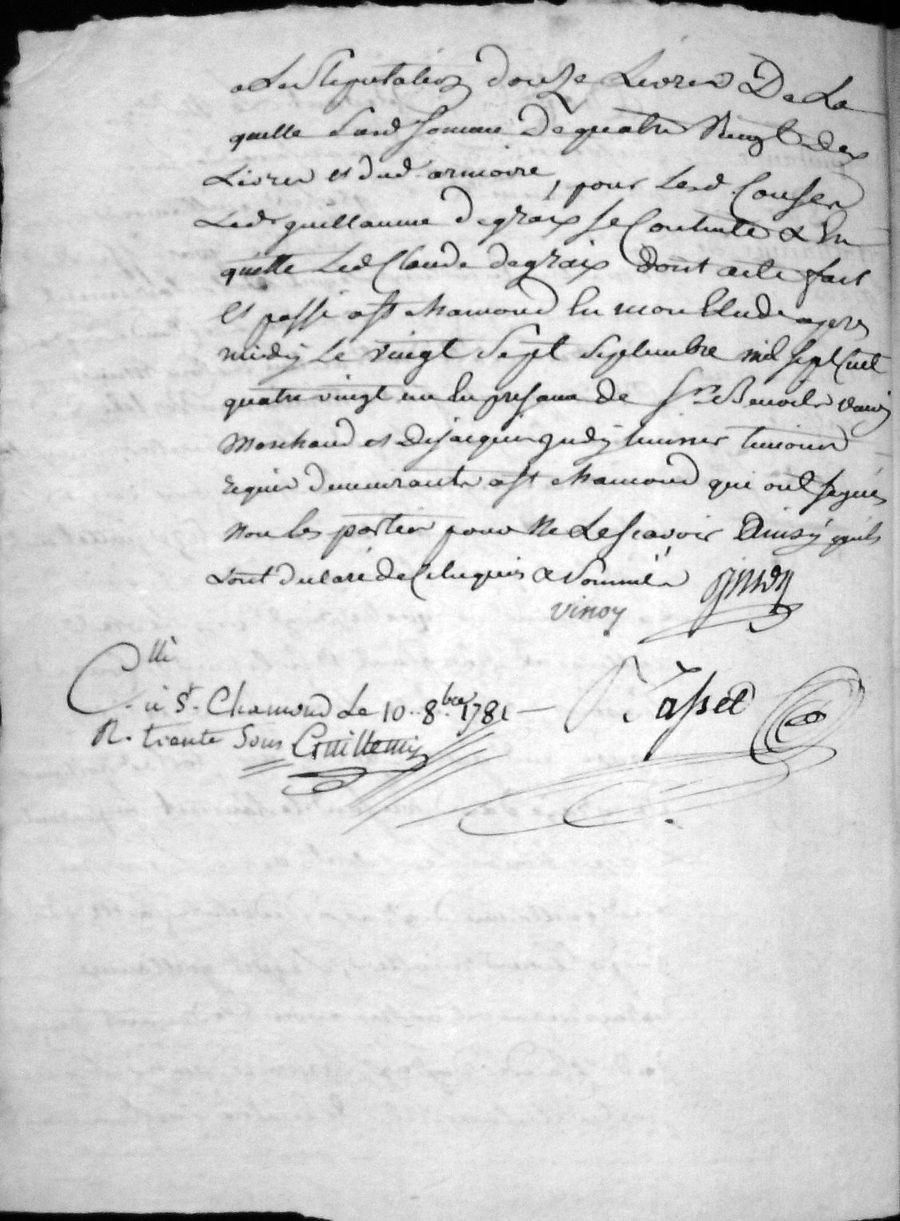 douze Livres De La
quelle Susd somme De quatre Vingt dix
Livres et dud. armoire, pour Led. Consen
Led. guillaume degraix se Contente & En
quitte Led Claude degraix dont acte fait
Et passé a St chamond En mon Etude apres
midy Le vingt Sept Septembre mil Sept Cent
quatre vingt un En presance De Sr Benoit
Marchand et De jacques temoins
Requis demeurants a St chamond qui ont signés
Non les parties pour Ne Le scavoir Ainsy qu'ils
ont déclaré de Ce Enquis & Sommés
vinoy
Clli
à St. Chamond Le 10. 8bre 1781
R. trente Sous Guillemin